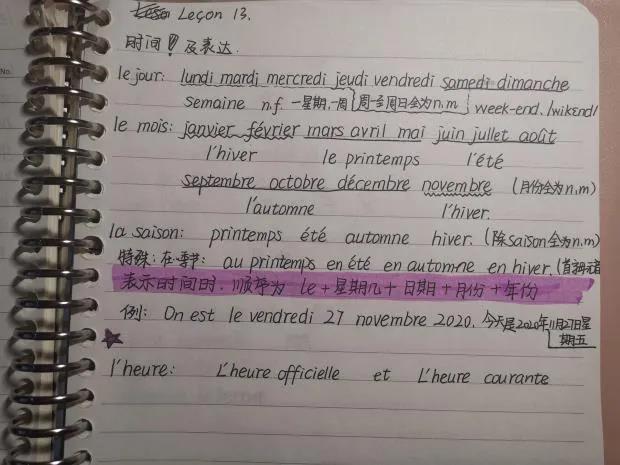 Leçon 13.
时间 及表达.
No.
le jour: lundi mardi mercredi jeudi vendredi samedi dimanche
semaine n.f. 一星期,一周 周一至周日全为n.m week-end. /wikɛnd/
le mois: janvier février mars avril mai juin jullet août
l'hiver le printemps l'été
septembre octobre décembre novembre (月份全为n.m)
l'automne l'hiver.
la saison: printemps été automne hiver. (除saison全为n.m)
特殊: 在季节: au printemps en été en automne en hiver.
表示时间时,顺序为 le + 星期几 + 日期 + 月份 + 年份
例: On est le vendredi 27 novembre 2020. 今天是2020年11月27日星
期五
l'heure: L'heure officielle et L'heure courante